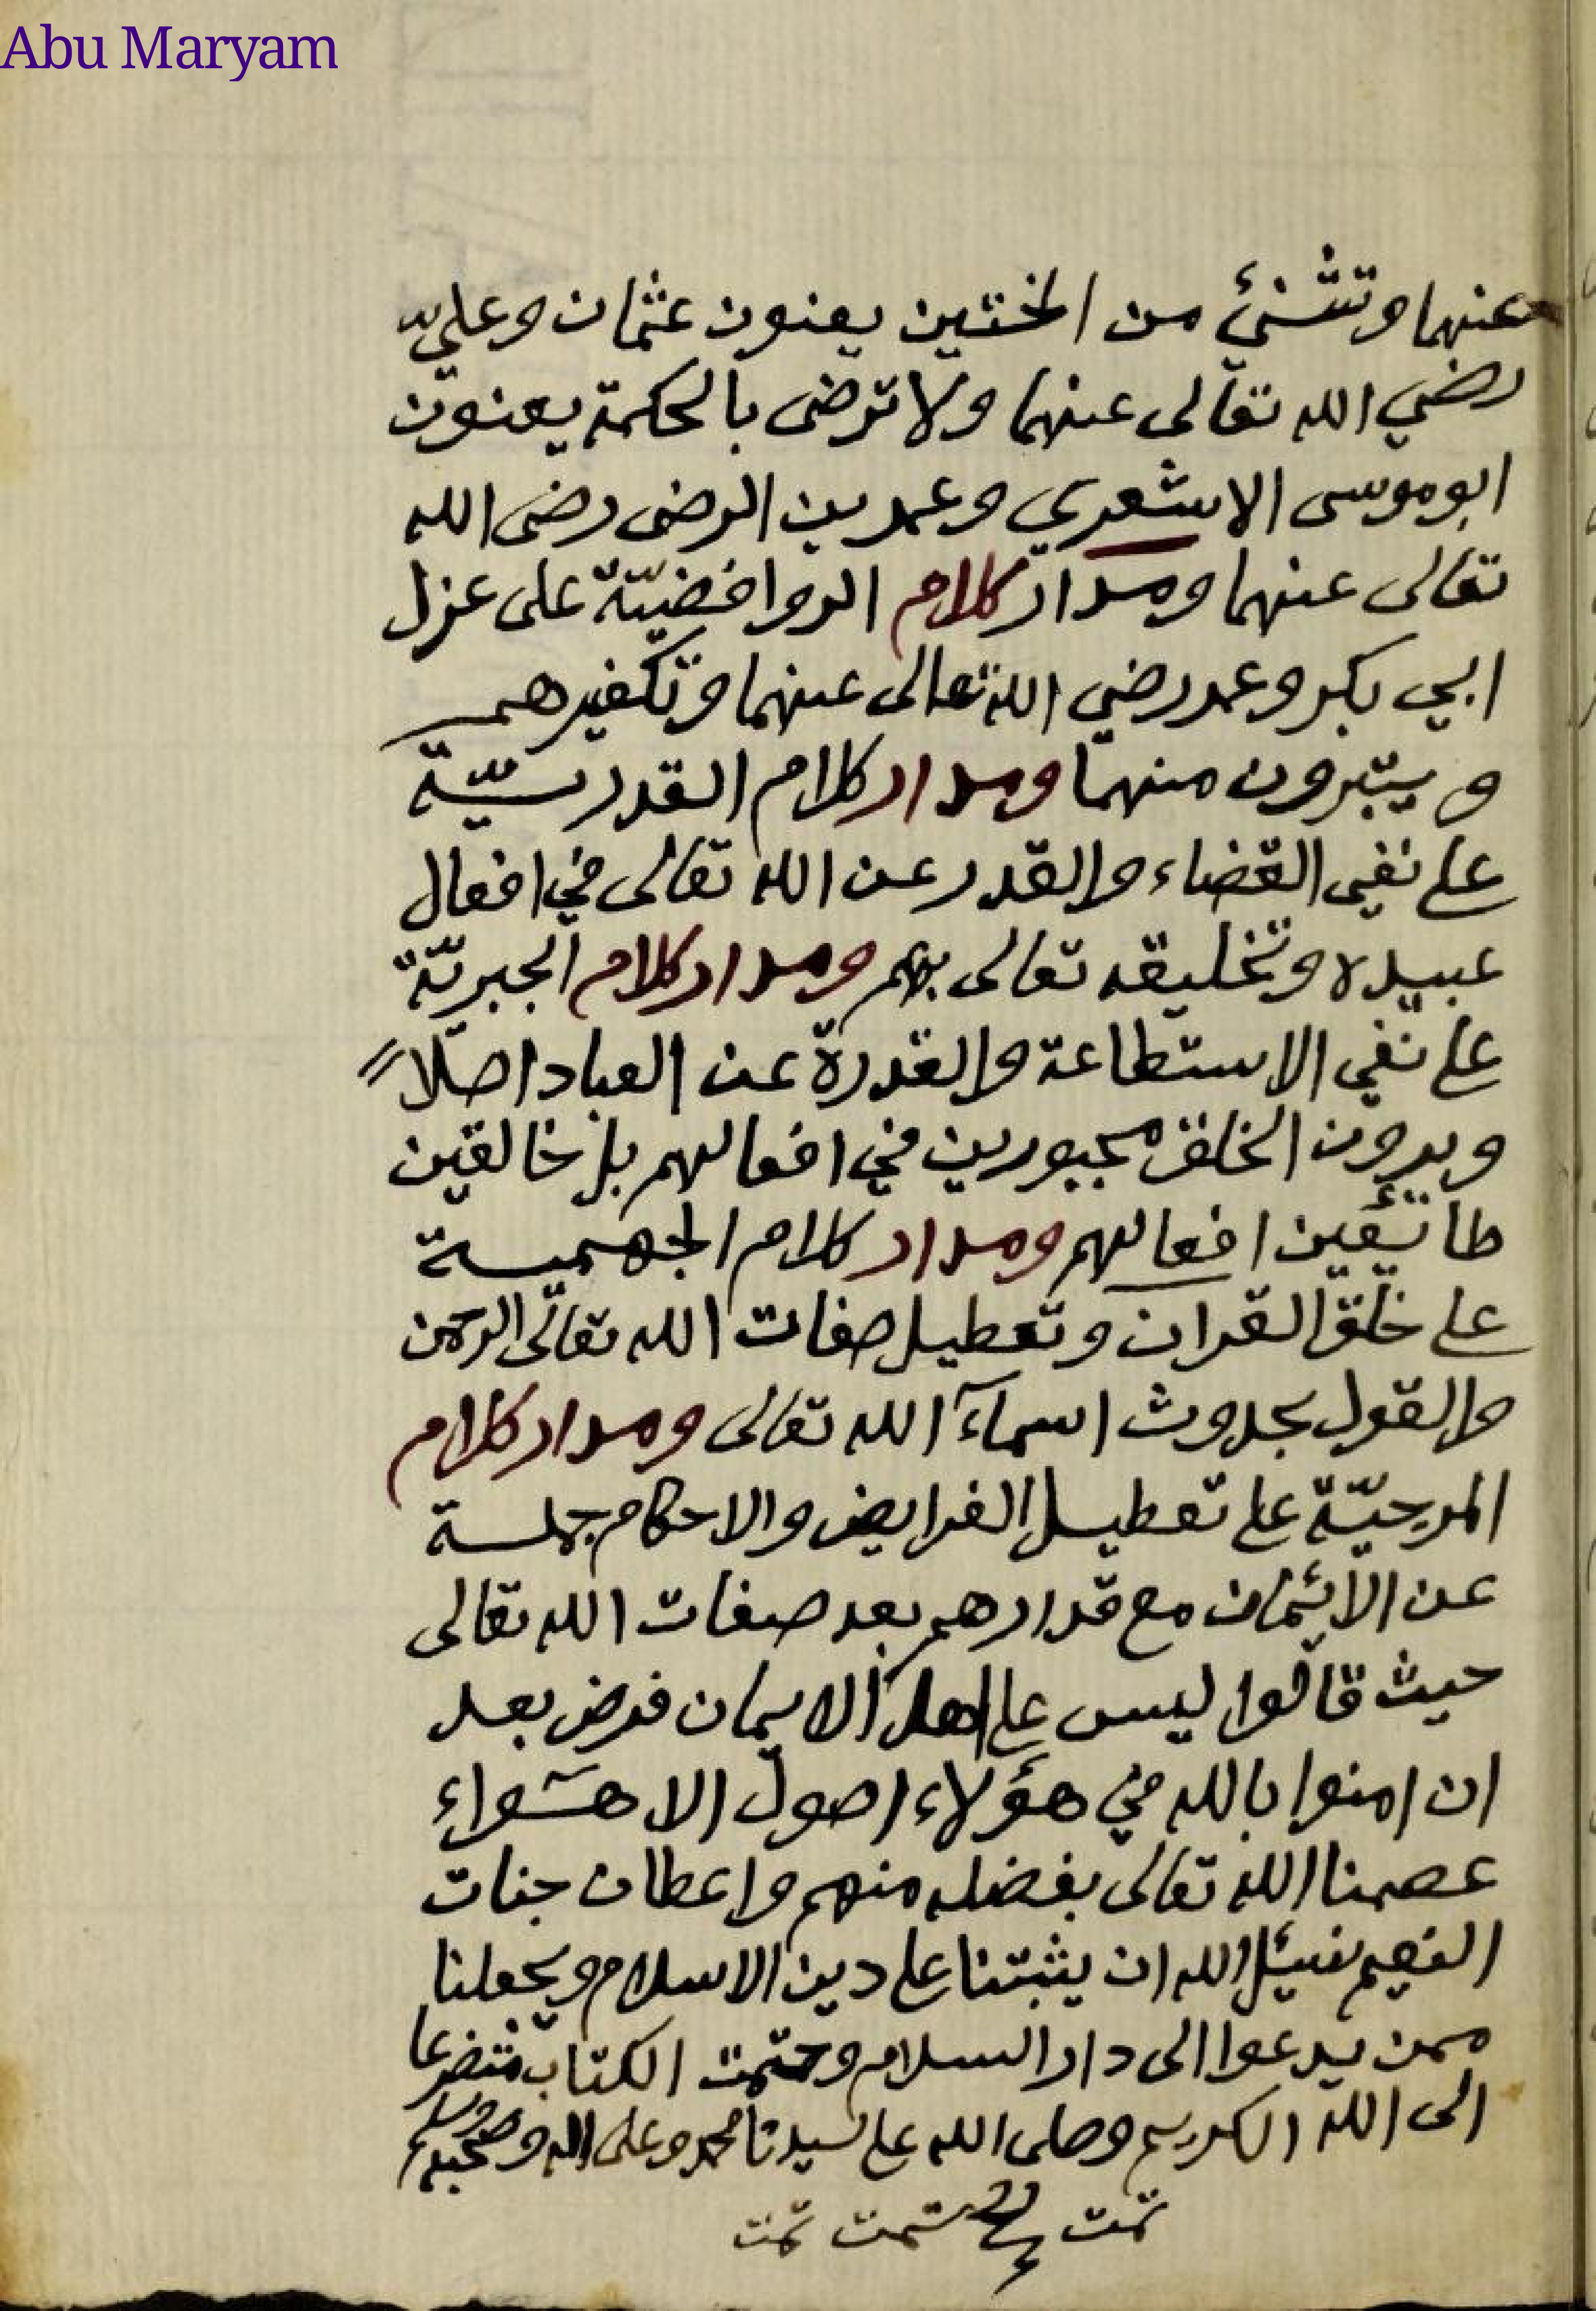 Abu Maryam
عنهما وتشنئ من الختين يعنون عثمان وعليّ
رضي الله تعالى عنهما ولا ترضى بالحكمة يعنون
ابو موسى الاشعري وعمر بن الرضى رضى الله
تعالى عنهما ومدار كلام الروافضيّة على عزل
ابي بكر وعمر رضي الله تعالى عنهما وتكفيرهم
ويتبرون منهما ومدار كلام القدريّة
على نفى القضاء والقدر عن الله تعالى في افعال
عبيده وتخليقه تعالى بهم ومدار كلام الجبريّة
على نفي الاستطاعة والقدرة عن العباد اصلاً
ويرون الخلق مجبورين في افعالهم بل خالقين
طائعين افعالهم ومدار كلام الجهمية
على خلق القران وتعطيل صفات الله تعالى الرحمن
والقول بحدوث اسمآء الله تعالى ومدار كلام
المرجيّة على تعطيل الفرايض والاحكام جملة
عن الائمان مع قرارهم بعد صفات الله تعالى
حيث قالوا ليس على اهل الايمان فرض بعد
ان امنوا بالله في هؤلاء اصول الاهواء
عصمنا الله تعالى بفضله منهم واعطان جنات
النعيم نسئل الله ان يثبتنا على دين الاسلام ويجعلنا
ممن يدعوا الى دار السلام وختمت الكتاب متضرعا
الى الله الكريم وصلى الله على سيدنا محمد وعلى اله وصحبه وسلم
تمت تمت تمت